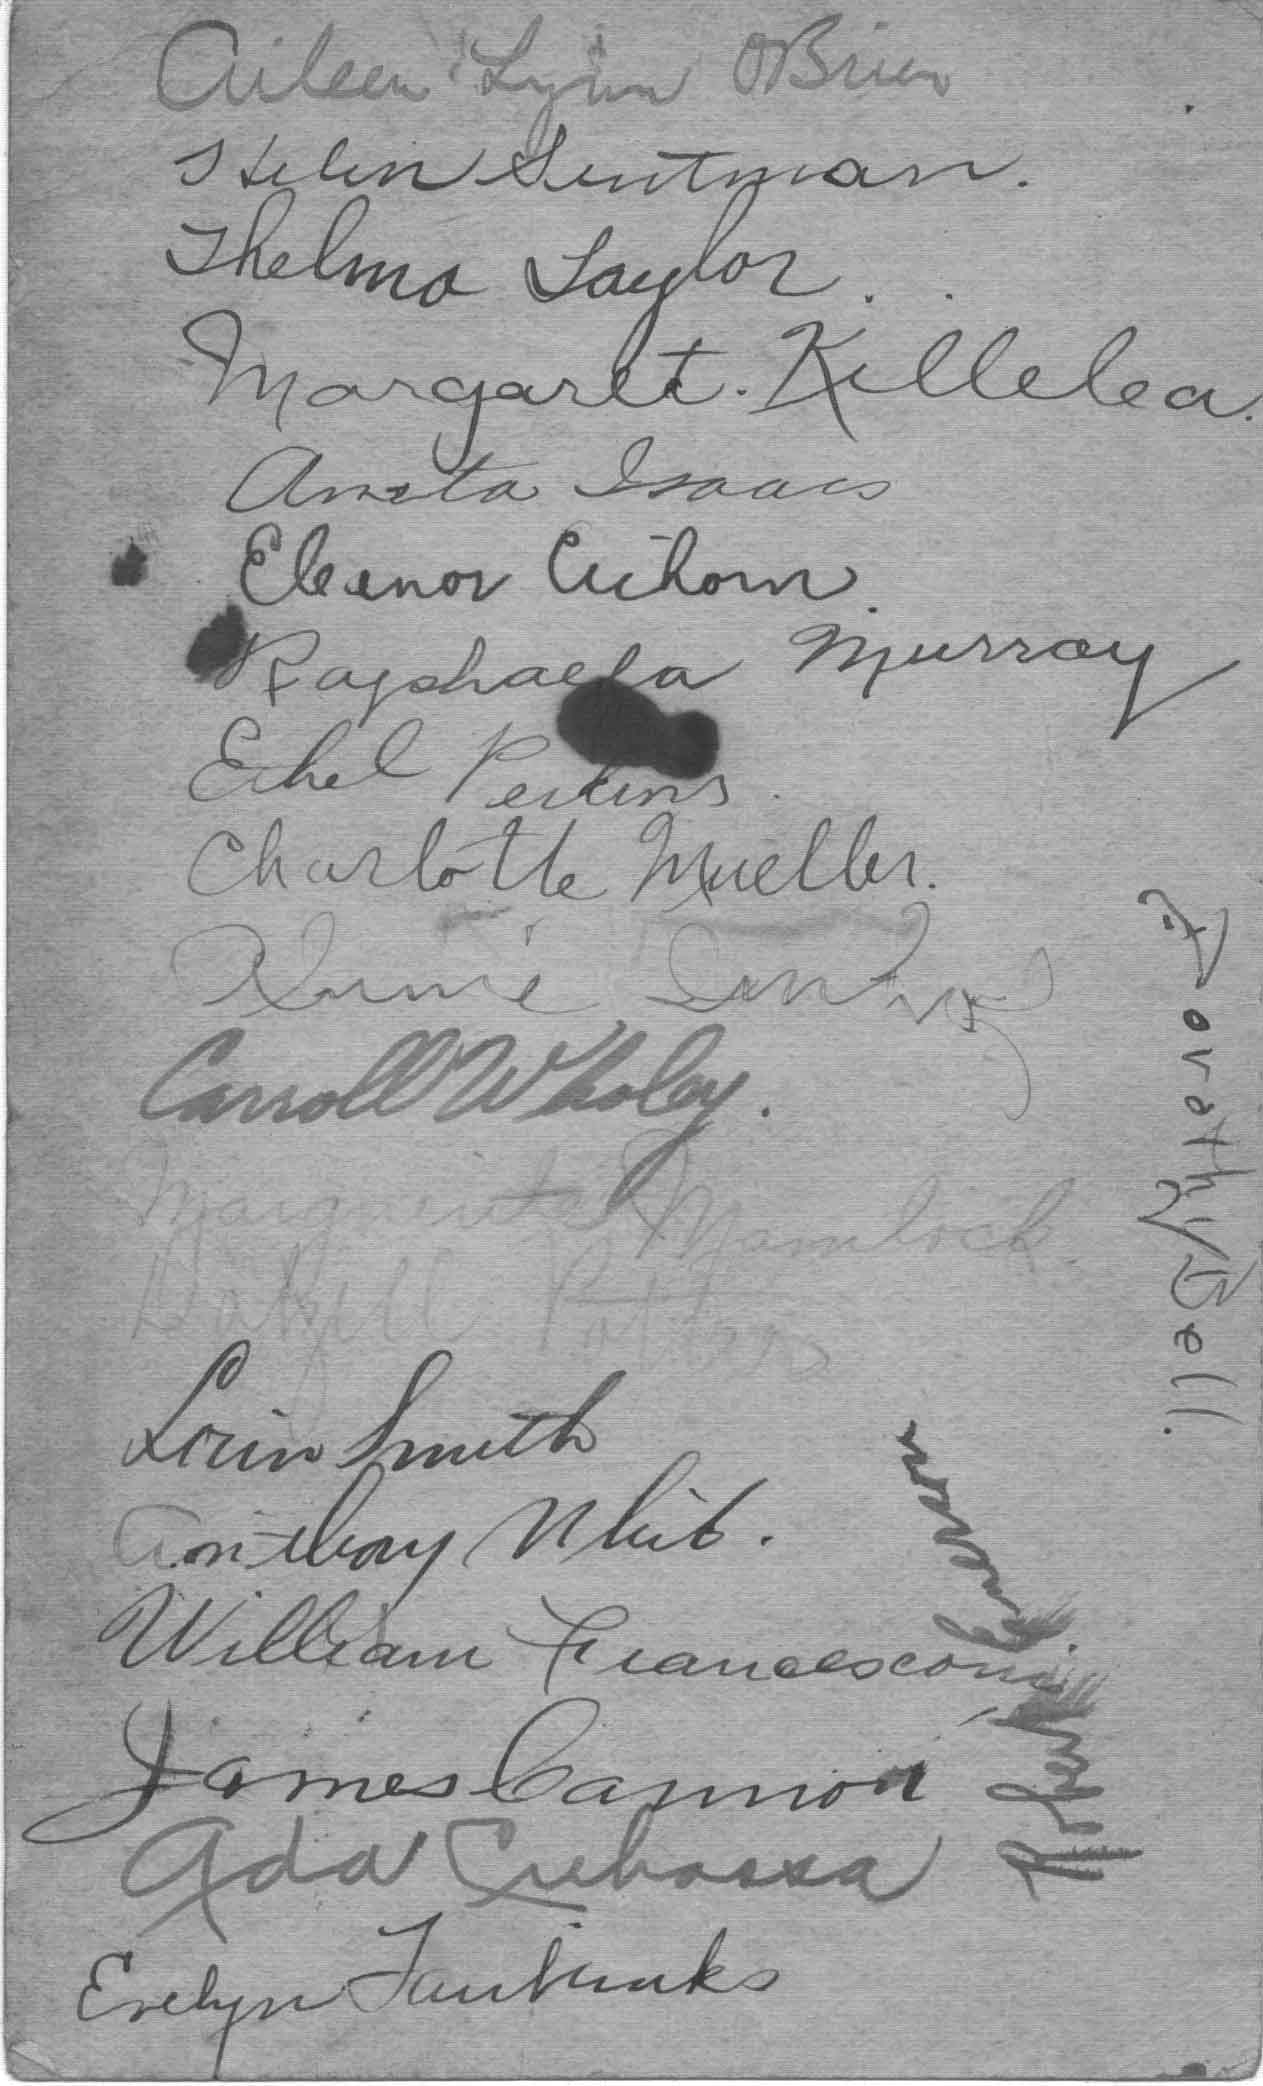 Aileen Lynn OBrien
Helen Sentman.
Thelma Taylor.
Margaret. Killelea.
Aneta Isaacs
Eleanor Eichorn.
Raphaela Murray
Ethel Perkins.
Charlotte Mueller.
Annie
Carroll Wholey.
Marguerite Mamlock
Dalzell
Lorin Smith
Anthony Whit.
William Francesconi
James Cannon
Ada
Evelyn Fairbanks
Dorothy Bell.